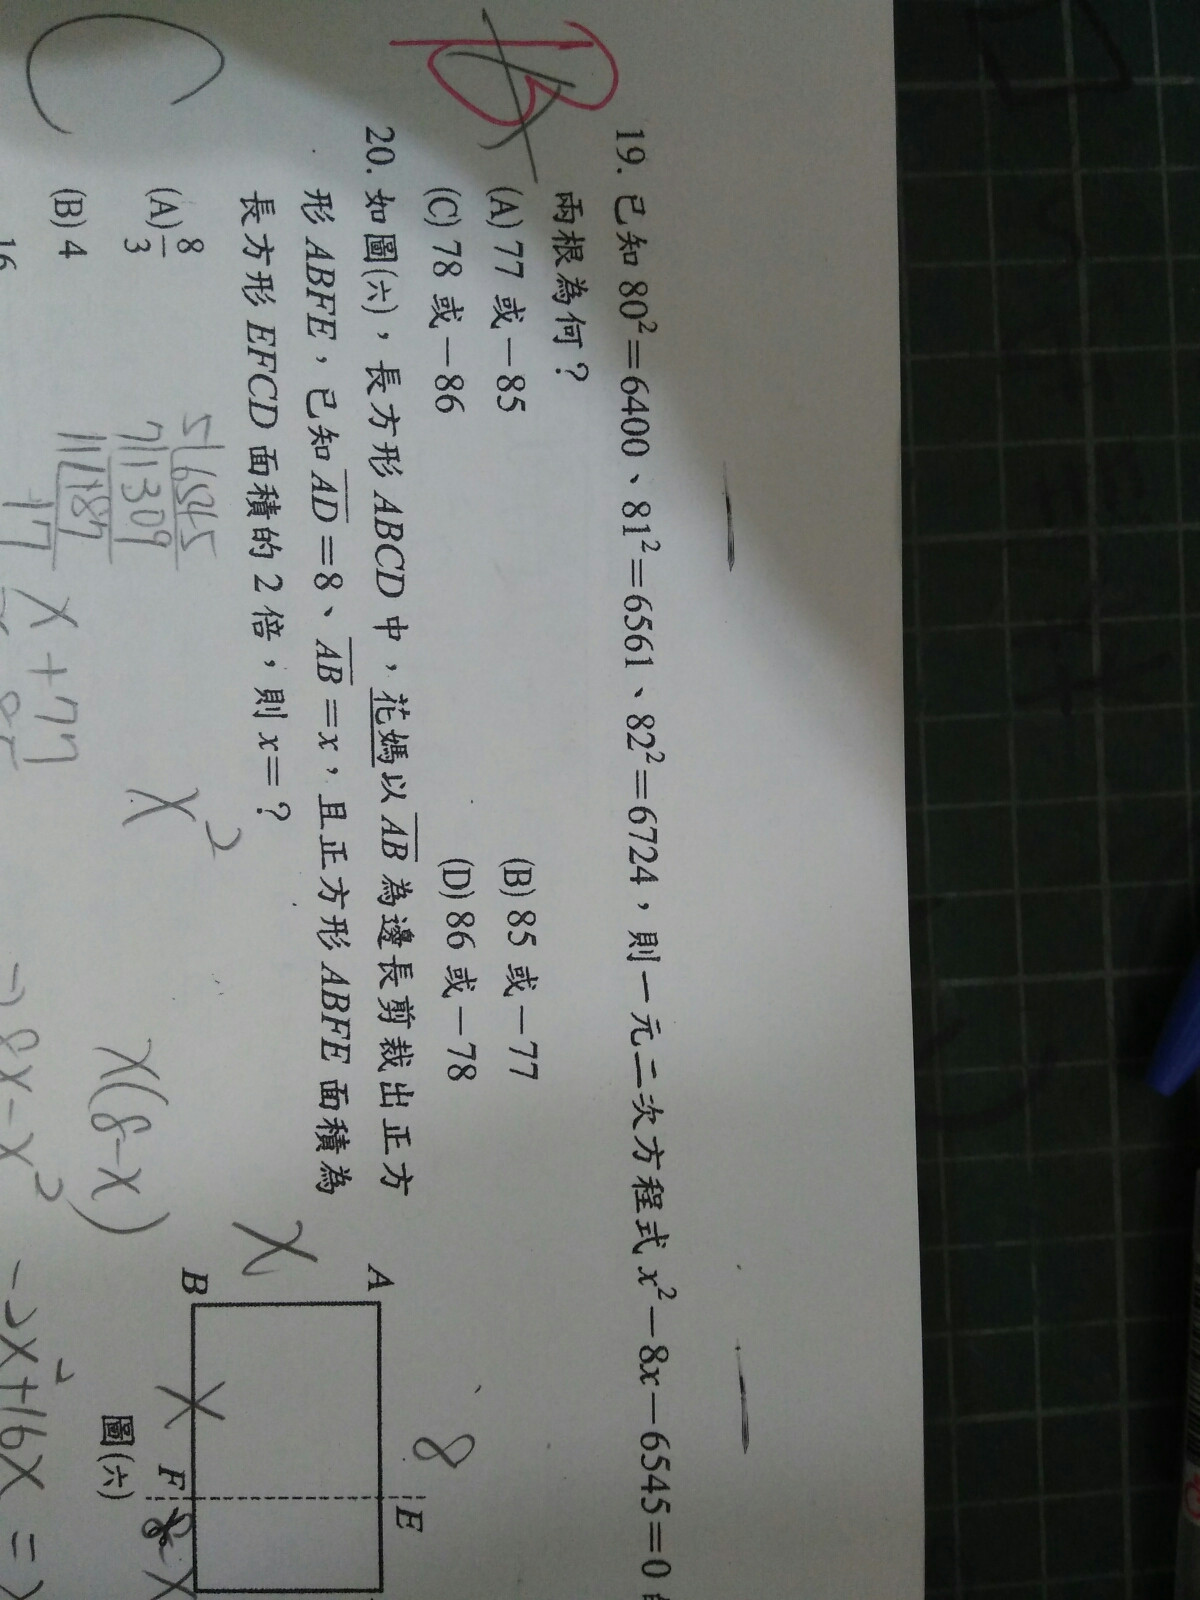 B
19. 已知 80²=6400、81²=6561、82²=6724，則一元二次方程式 x²-8x-6545=0
兩根為何？
(A) 77 或 -85 (B) 85 或 -77
(C) 78 或 -86 (D) 86 或 -78
C
20. 如圖(六)，長方形 ABCD 中，花媽以 AB 為邊長剪裁出正方
形 ABFE，已知 AD=8、AB=x，且正方形 ABFE 面積為
長方形 EFCD 面積的 2 倍，則 x=？
(A) 8/3
(B) 4
16
5 6545
7 1309
11 187
17
x+77
x²
x(8-x)
8x-x²
-2x²+16x=
8
A
E
x
B
x
F
8-x
圖(六)